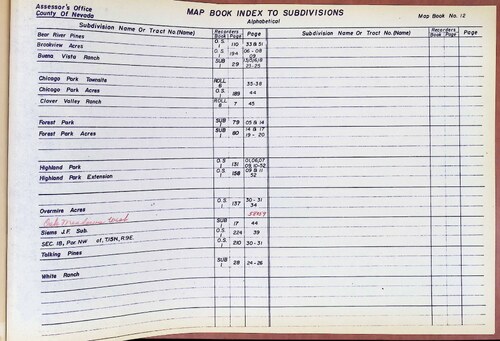 Assessor's Office
County Of Nevada
MAP BOOK INDEX TO SUBDIVISIONS
Alphabetical
Map Book No. 12
Subdivision Name Or Tract No.(Name) Recorders Book Page Map Page
Subdivision Name Or Tract No.(Name) Recorders Book Page Page
Bear River Pines O.S. 1 110 33 & 51
Brookview Acres O.S. 1 194 06-08
Buena Vista Ranch SUB 1 29
Chicago Park Townsite ROLL 8 35-38
Chicago Park Acres O.S. 1 189 44
Clover Valley Ranch ROLL 8 7 45
Forest Park SUB 1 79 05 & 14
Forest Park Acres SUB 1 80 14 & 17
19-20
Highland Park O.S. 1 131 01,06,07
09,10-52
Highland Park Extension O.S. 1 158 09 & 11
52
Overmire Acres O.S. 1 137 30-31
34
Siems J.F. Sub. SUB 1 17 44
SEC. 18, Por. NW of, T.15N., R.9E. O.S. 1 224 39
Talking Pines O.S. 1 210 30-31
White Ranch SUB 1 28 24-26